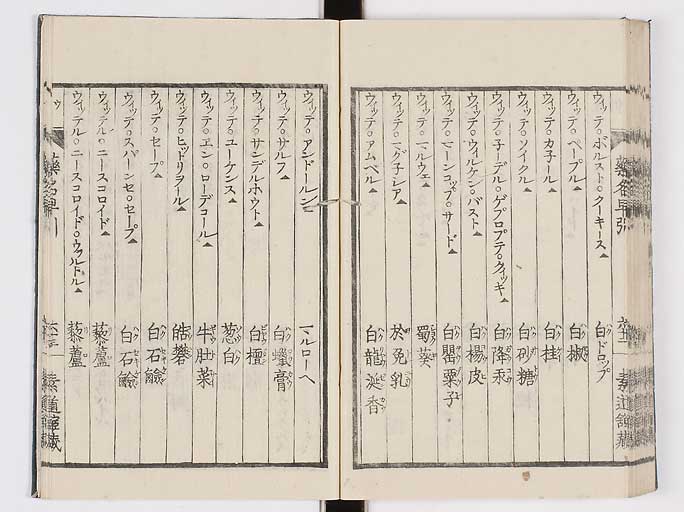 ウィッテ。ボルスト。クーキース▲ 白ドロップ
ウィッテ。ペープル▲ 白椒
ウィッテ。カ子ール▲ 白桂
ウィッテ。ソイクル▲ 白砂糖
ウィッテ。子ーデル。ゲプロプテ。クイッキ▲ 白降汞
ウィッテ。ウィルケン。バスト▲ 白楊皮
ウィッテ。マーンコップ。サード▲ 白罌粟子
ウィッテ。マルウェ▲ 蜀葵
ウィッテ。マグ子シア▲ 於兔乳
ウィッテ。アムベル▲ 白龍涎香
ウィッテ。アンドールン マルローヘ
ウィッテ。サルフ▲ 白蠟膏
ウィッテ。サンデルホウト▲ 白檀
ウィッテ。ユーケンス▲ 葱白
ウィッテ。エン。ローデコール▲ 牛肚菜
ウィッテ。ヒットリヲール▲ 皓礬
ウィッテ。セープ▲ 白石鹼
ウィッテ。スパーンセ。セープ▲ 白石鹼
ウィッテル。ニースコロイド▲ 藜蘆
ウィッテル。ニースコロイド。ウヲルトル▲ 藜蘆